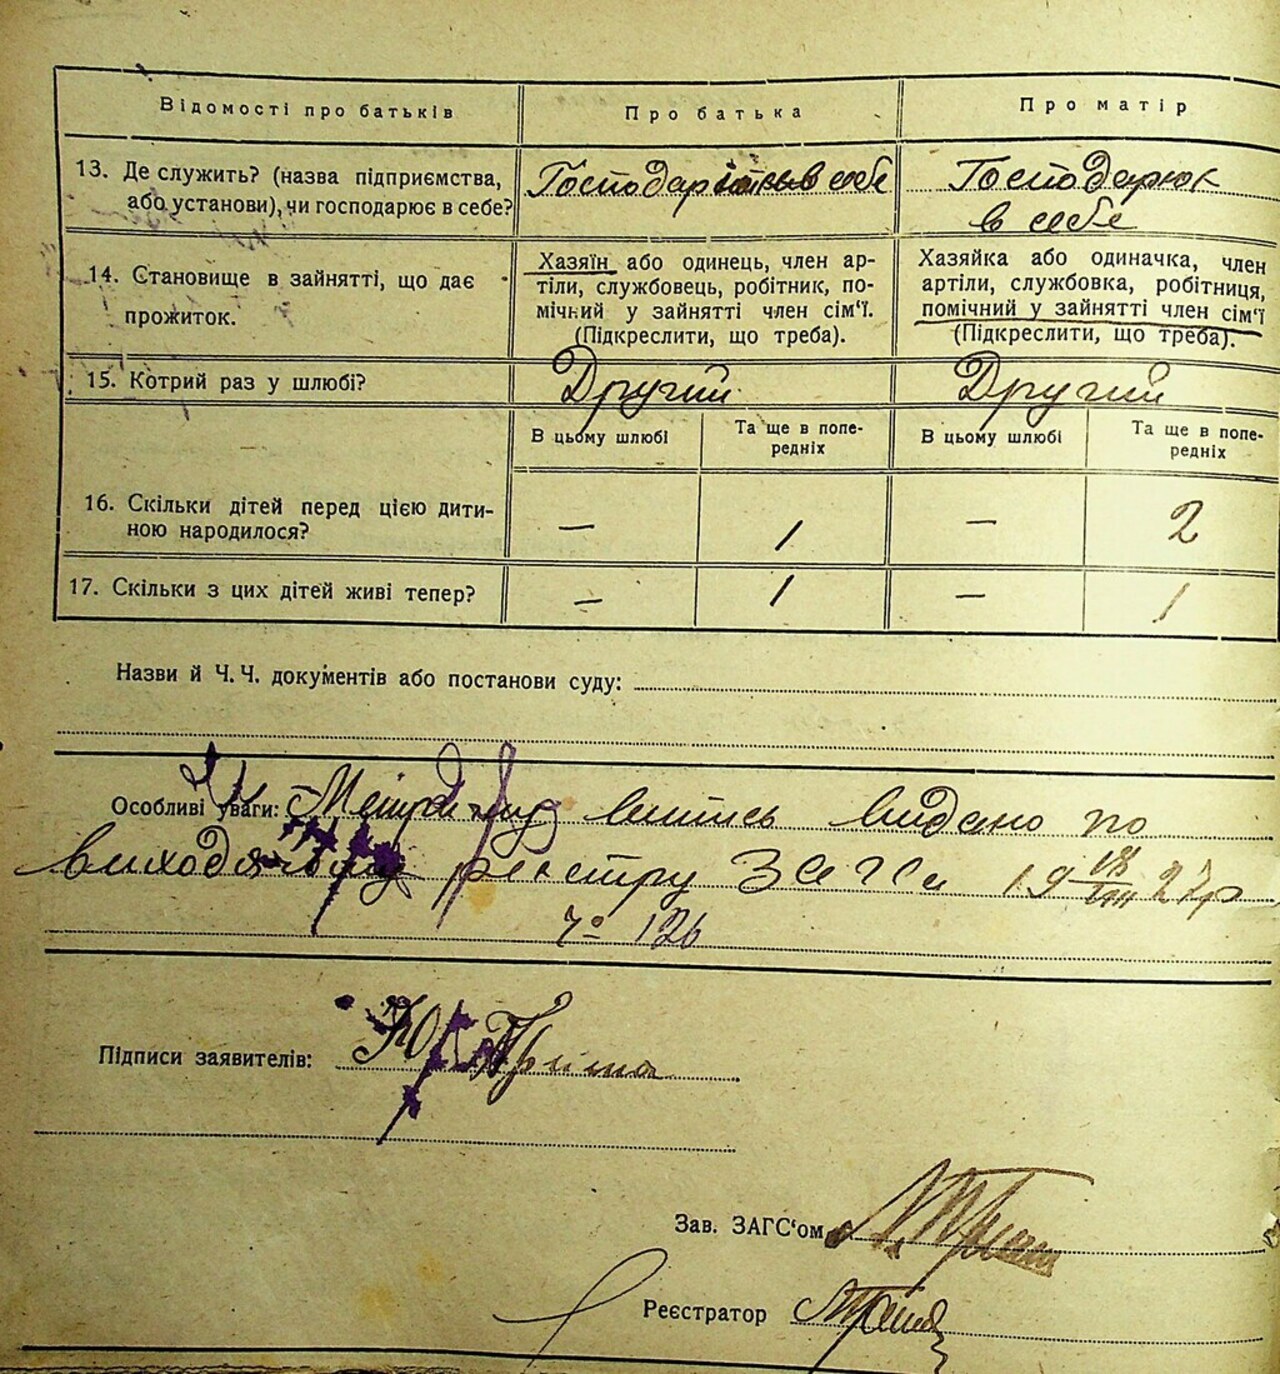 Відомості про батьків
Про батька
Про матір
13. Де служить? (назва підприємства,
або установи), чи господарює в себе?
в себе
Господарює
в себе
14. Становище в зайнятті, що дає
прожиток.
Хазяїн або одинець, член ар-
тіли, службовець, робітник, по-
мічний у зайнятті член сім'ї.
(Підкреслити, що треба).
Хазяйка або одиначка, член
артіли, службовка, робітниця,
помічний у зайнятті член сім'ї
(Підкреслити, що треба).
15. Котрий раз у шлюбі?
Другий
Другий
В цьому шлюбі
Та ще в попе-
редніх
В цьому шлюбі
Та ще в попе-
редніх
16. Скільки дітей перед цією дити-
ною народилося?
—
1
—
2
17. Скільки з цих дітей живі тепер?
—
1
—
1
Назви й Ч. Ч. документів або постанови суду:
Особливі уваги: випись видано по
реєстру ЗАГСа
126
Підписи заявителів:
Зав. ЗАГС'ом
Реєстратор